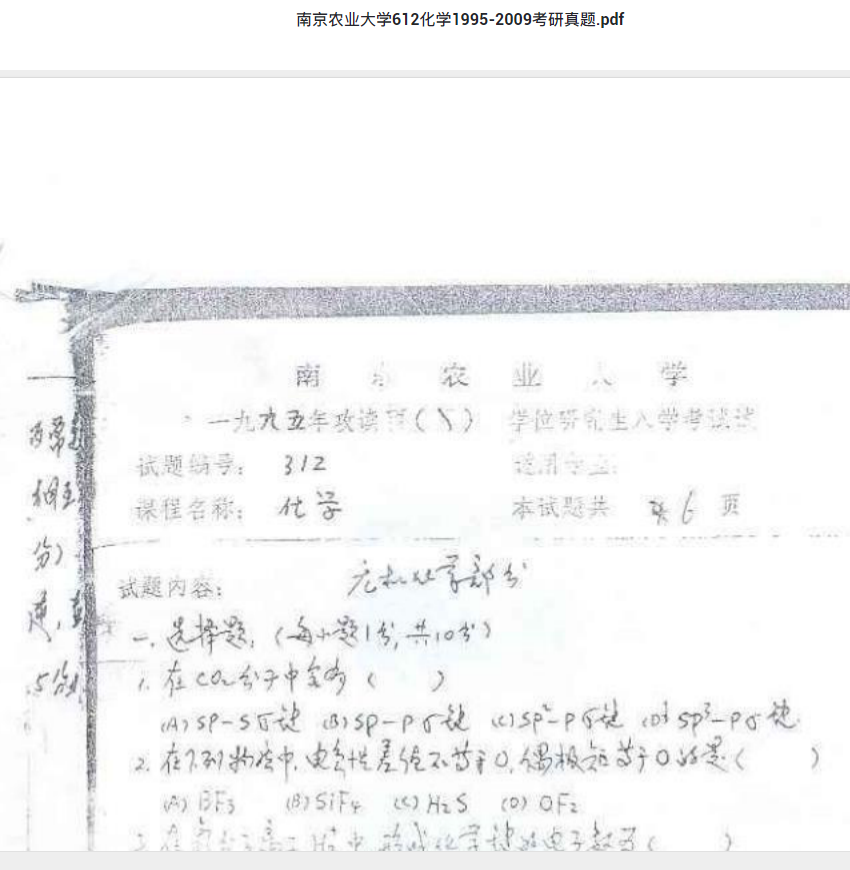 南京农业大学612化学1995-2009考研真题.pdf
南 京 农 业 大 学
一九九五年攻读 学位研究生入学考试试
试题编号: 312 适用专业:
课程名称: 化学 本试题共 6 页
试题内容: 无机化学部分
一. 选择题. (每小题1分, 共10分)
1. 在CO₂分子中含有 ( )
(A) SP-S σ键 (B) SP-P σ键 (C) SP²-P σ键 (D) SP³-P σ键.
2. 在下列物质中, 电负性差值不等于0, 偶极矩等于0的是 ( )
(A) BF₃ (B) SiF₄ (C) H₂S (D) OF₂
相互
分)
5分